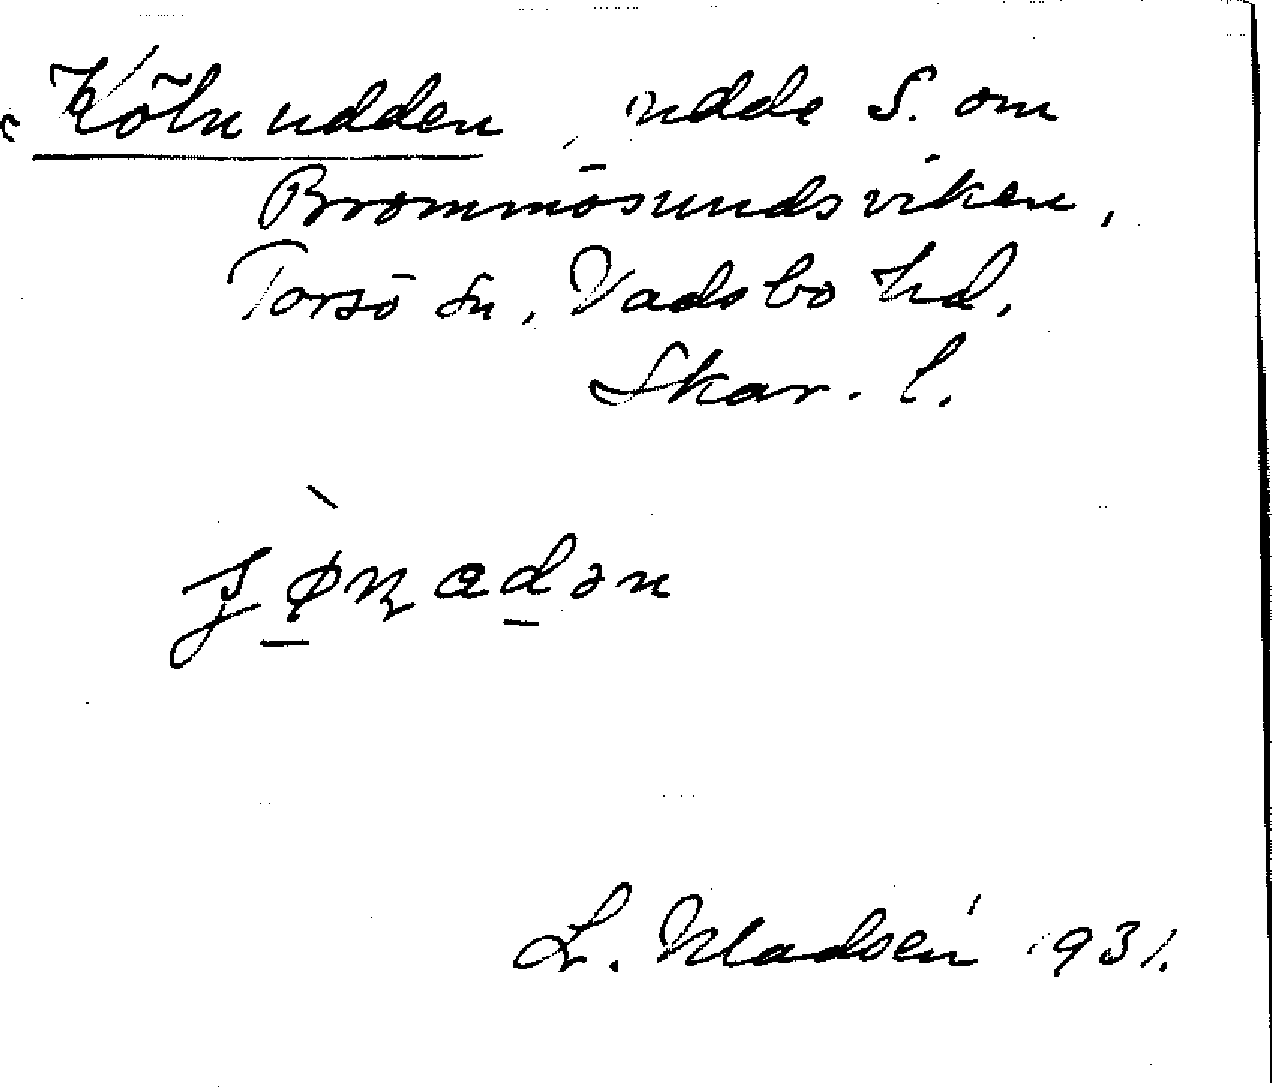 Kölnudden, udde S. om
Brommösundsviken,
Torsö sn, Vadsbo hd.
Skar. l.
L. Madsén 1931.